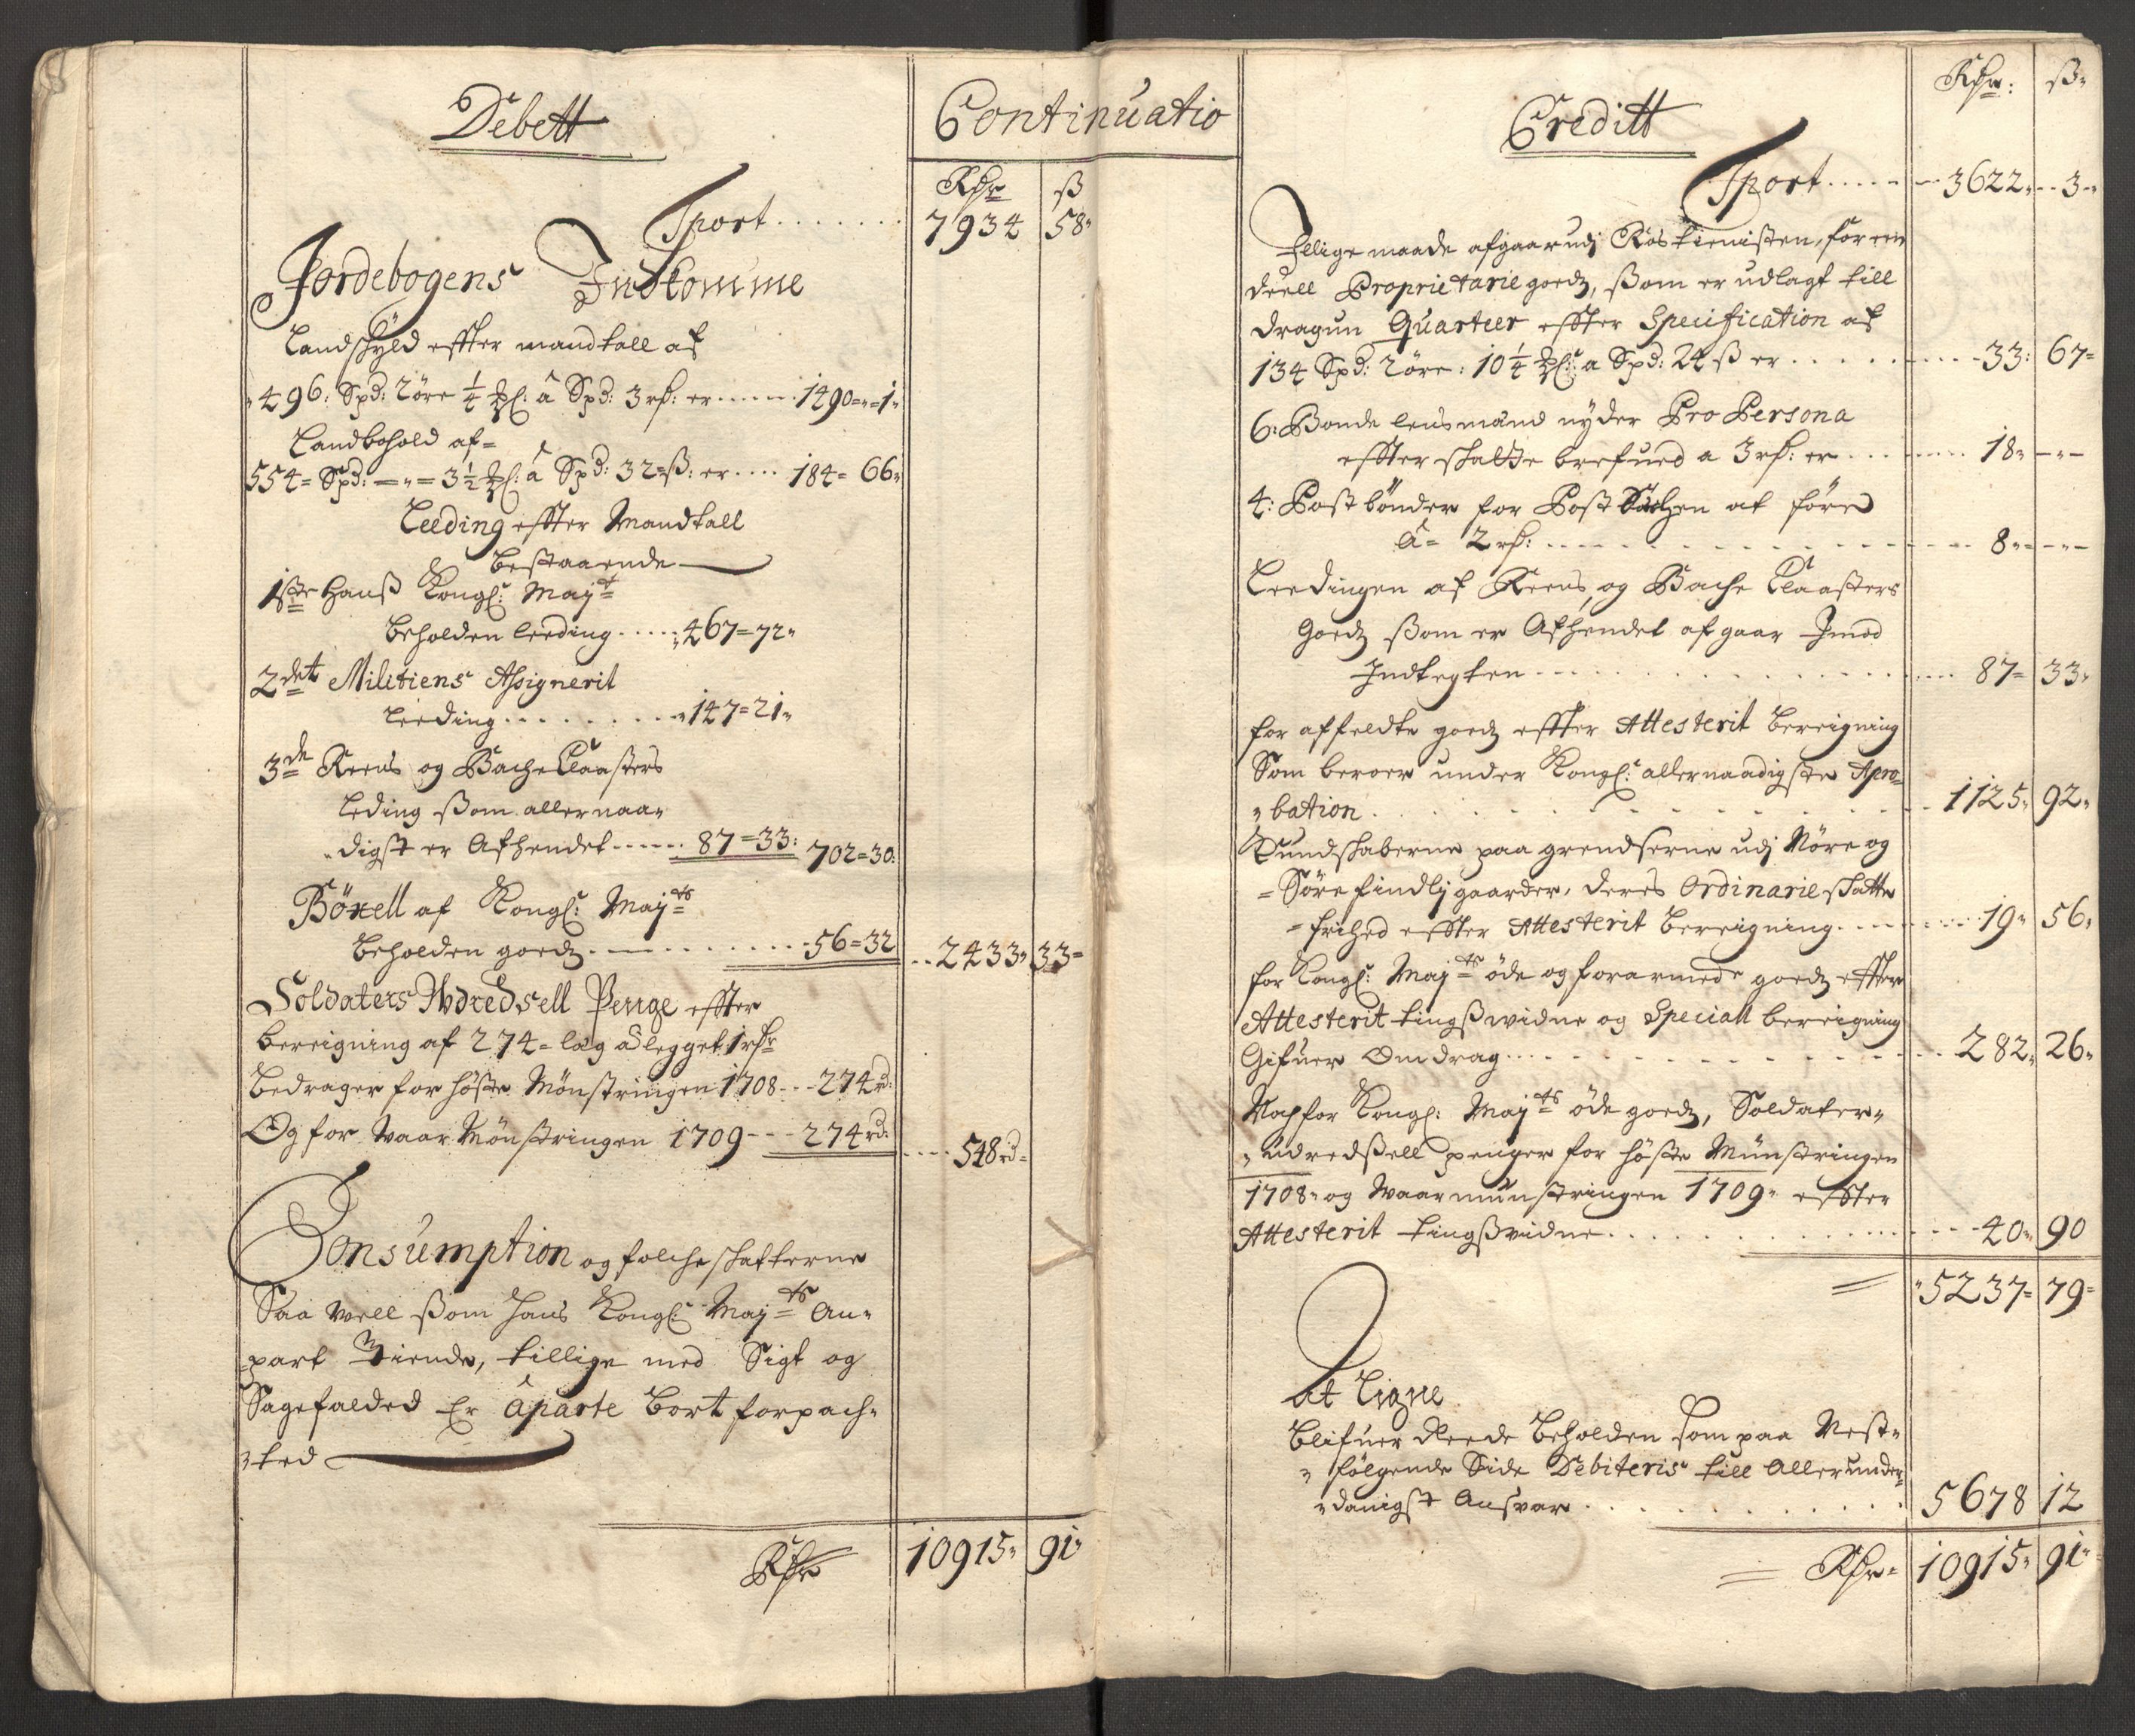 Debett
Continuatio
Rdr ß
Tport ....... 7934 58"
Jordebogens Indkomme
Landschyld effter mandtall af
"496: Spd: 2 öre ¼ â Spd: 3 rd: er ...... 1490="=1"
Landbohold af=
554= Spd: ="= 3½ â Spd: 32=ß: er .... 184= 66"
Leeding effter Mandtall
bestaaende
1ste Hanß Kongl: Mayts
beholden leeding ..... 467=72"
2det Militiens Assignerit
leeding ......... "147=21"
3de Reens og Bache Claasters
leding ßom allernaa"
"digst er Afhendet ...... 87=33: 702=30:
Böxell af Kongl: Mayts
beholden goedz .......... 56=32 .. 2433" 33=
Soldaters Udredsell Penge effter
bereigning af 274= læg â legget 1 rdr
bedrager for höste Mönstringen 1708 ... 274 rd:
Og for Vaar Mönstringen 1709 --- 274 rd: .... 548 rd=
Consumption og folcheskatterne
Saa vell ßom hans Kongl: Mayts An"
part Tiende, tillige med Sigt og
Sagefalded Er âparte bortforpach"
"ted
Rdr 10915" 91"
Creditt
Rdr: ß"
Tport ...... 3622" .. 3"
Jllige maade afgaar udj Ros tienisten, for een
deell Proprietarie goedz, ßom er udlagt till
dragun Quarteer effter Specification af
134 Spd: 2 öre: 10¼ a Spd: 24 ß er ........ 33: 67=
6: Bonde lensmænd nyder Pro Persona
effter skatte brefued a 3 rd: er ....... 18" -"-
4: Postbönder for Post at före
â= 2 rd: ........ 8" = -"-
Leedingen af Reens, og Bache Claasters
Goedz ßom er Afhendet afgaar Jmod
Jndtegten ........ 87= 33"
for affeldte goedz effter Attesterit bereigning
Som beroer under Kongl: allernaadigste Apro=
"bation ........ 1125" 92"
Kundskaberne paa grendserne udj Nöre og
= Söre findlj gaarder, deres Ordinarie skatte
= frihed effter Attesterit bereigning ........ 19" 56"
for Kongl: Mayts öde og forarmede goedz effter
Attesterit tingßwidne og Speciall bereigning
Gifuer Omdrag ........ 282" 26"
Noch for Kongl: Mayts öde goedz, Soldater"
"udredßell penger for höste Münstringen
1708" og Vaarmünstringen 1709" effter
Attesterit tingßvidne ........ 40" 90
= "5237= 79=
At Ligne
blifuer Reede beholden som paa Nest"
"fölgende Side Debiteris till Allerunder=
"danigst Ansvar ........ 5678 12
= Rdr= 10915" 91"